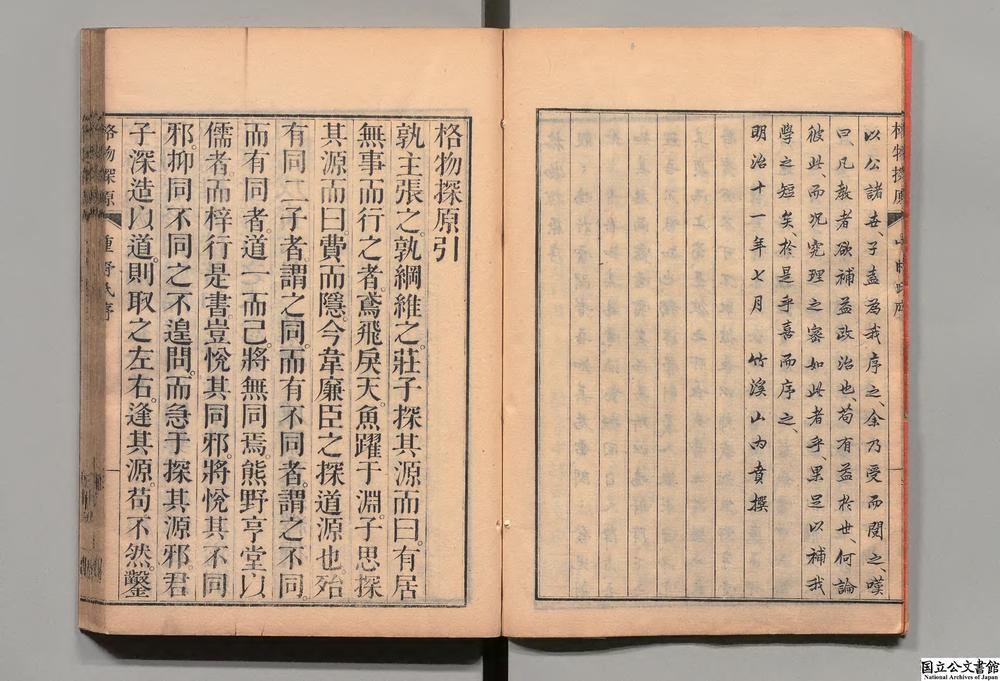 以公諸世子盍為我序之、余乃受而閱之、嘆
曰、凡教者欲補益政治也、苟有益於世、何論
彼此、而况究理之密如此者乎果足以補我
學之短矣、於是乎喜而序之、
明治十一年七月 竹溪山内賁撰
格物探原引
孰主張之。孰綱維之。莊子探其源而曰。有居
無事而行之者。鳶飛戾天。魚躍于淵。子思探
其源而曰。費而隱。今韋廉臣之探道源也。殆
有同二子者。謂之同。而有不同者。謂之不同。
而有同者。道一而已。將無同焉。熊野亨堂以
儒者。而梓行是書。豈悅其同邪。將悅其不同
邪。抑同不同之不遑問。而急于探其源邪。君
子深造以道。則取之左右。逢其源。苟不然。鑿
格物探原
重野氏序
国立公文書館
National Archives of Japan